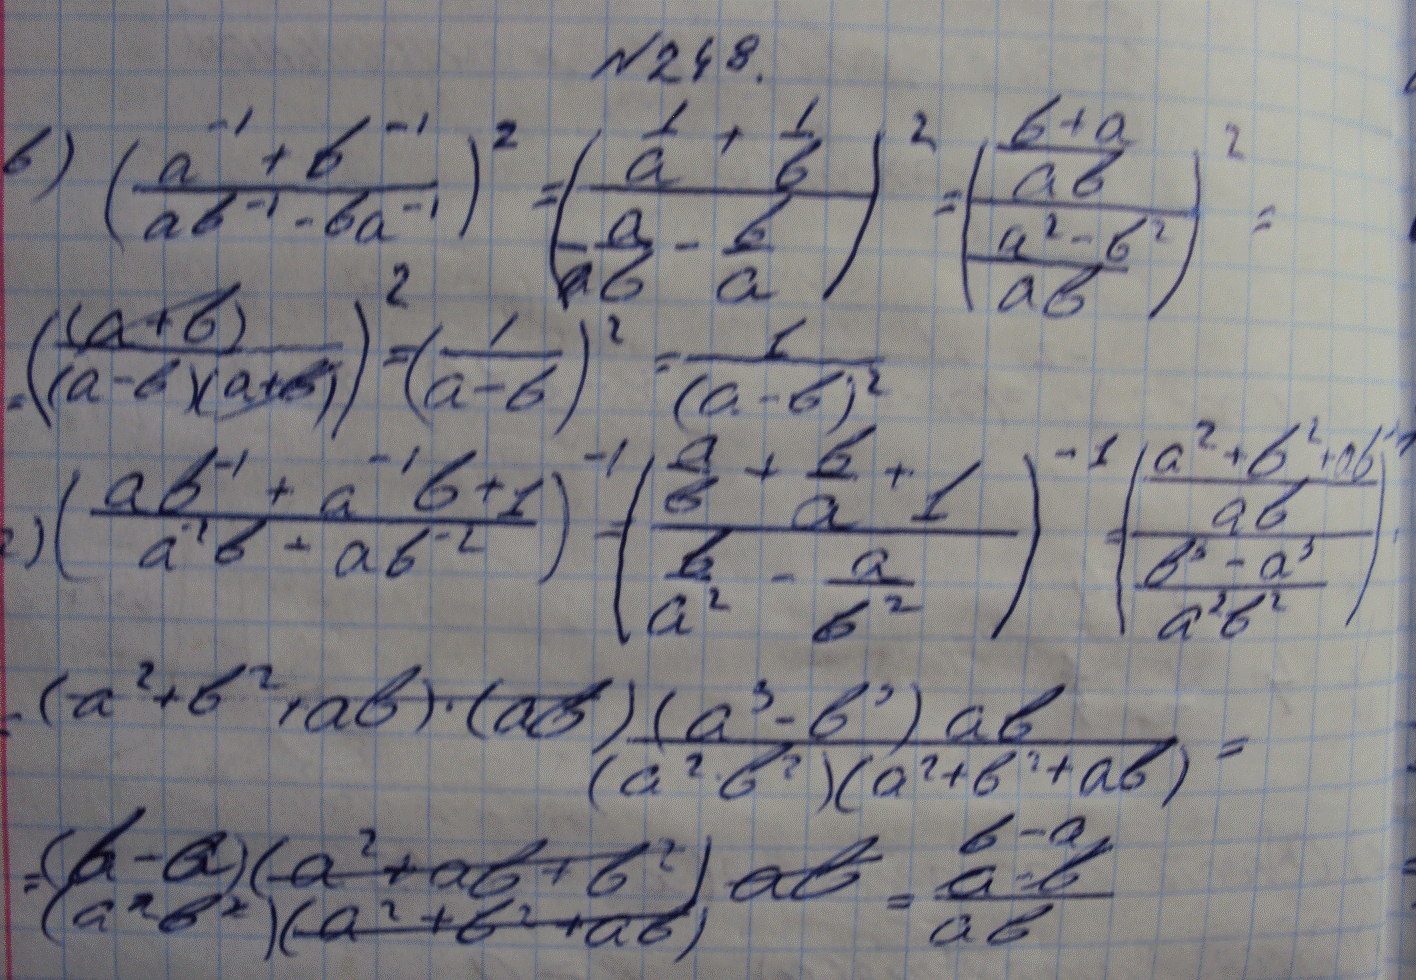 №248.
в) ((a⁻¹ + b⁻¹)/(ab⁻¹ - ba⁻¹))² = ((1/a + 1/b)/(a/b - b/a))² = (((b+a)/(ab))/((a² - b²)/(ab)))² =
= ((a+b)/((a-b)(a+b)))² = (1/(a-b))² = 1/(a-b)²
г) ((ab⁻¹ + a⁻¹b + 1)/(a⁻²b - ab⁻²))⁻¹ = ((a/b + b/a + 1)/(b/a² - a/b²))⁻¹ = (((a² + b² + ab)/(ab))/((b³ - a³)/(a²b²)))⁻¹
= (a³ - b³) ab/((a²·b²)(a² + b² + ab)) =
= (b - a)(a² + ab + b²) ab/((a²b²)(a² + b² + ab)) = (b - a)/(ab)